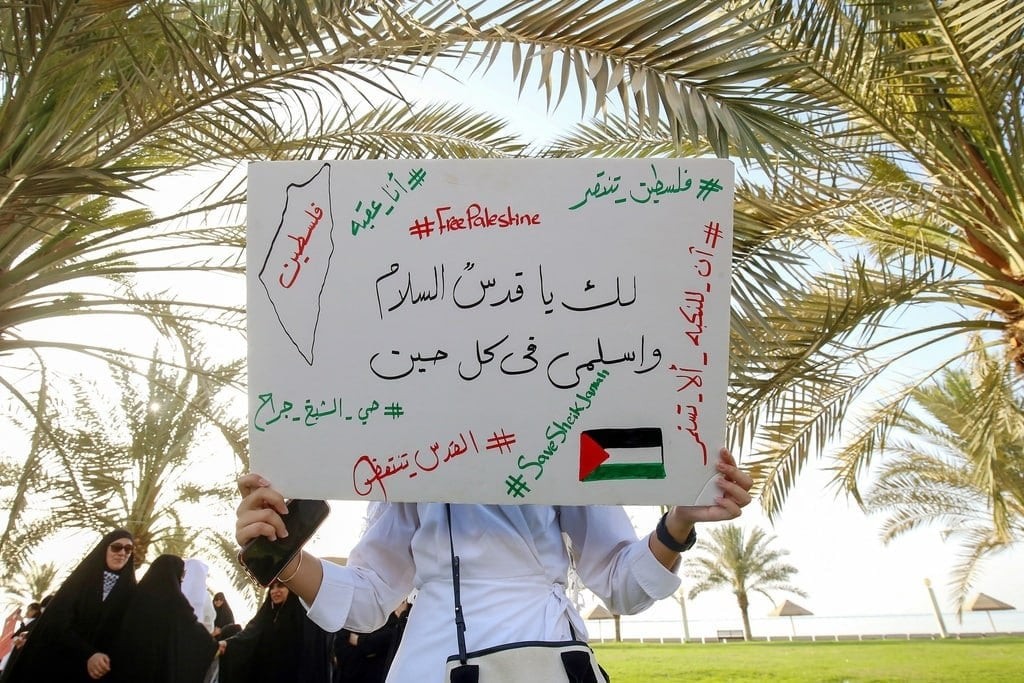 #فلسطين_تنتصر
#أنا_عقبه
#FreePalestine
فلسطين
لك يا قدسُ السلامُ
واسلمى فى كل حين
#آن_للنكبه_ألا_تستمر
#حي_الشيخ_جراح
#القدس_تنتفض
#SaveSheikJarrah